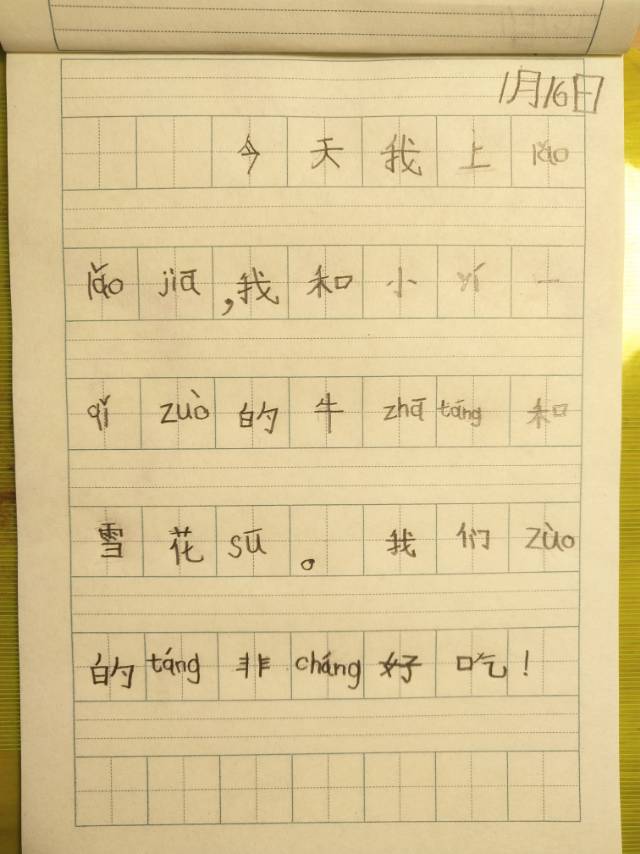 1月16日
今天我上lǎo
lǎo jiā,我和小yí一
qǐ zuò的牛zhā táng和
雪花sū。我们zùo
的táng非cháng好吃!